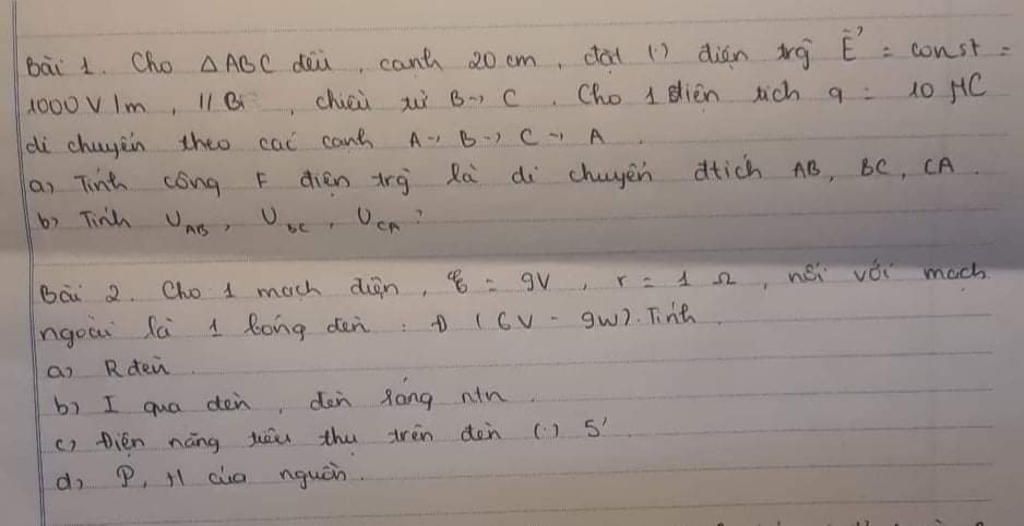 Bài 1. Cho △ABC đều, cạnh 20 cm, đặt (.) điện trg E⃗ = const =
1000 V/m, // BC, chiều từ B → C. Cho 1 điện tích q = 10 μC
di chuyển theo các cạnh A → B → C → A.
a) Tính công F điện trg là di chuyển đtích AB, BC, CA.
b) Tính U_AB, U_BC, U_CA?
Bài 2. Cho 1 mạch điện, ℰ = 9V, r = 1 Ω, nối với mạch
ngoài là 1 bóng đèn: Đ (6V - 9W). Tính
a) R đèn.
b) I qua đèn, đèn sáng ntn.
c) Điện năng tiêu thụ trên đèn (.) 5'
d) P, H của nguồn.